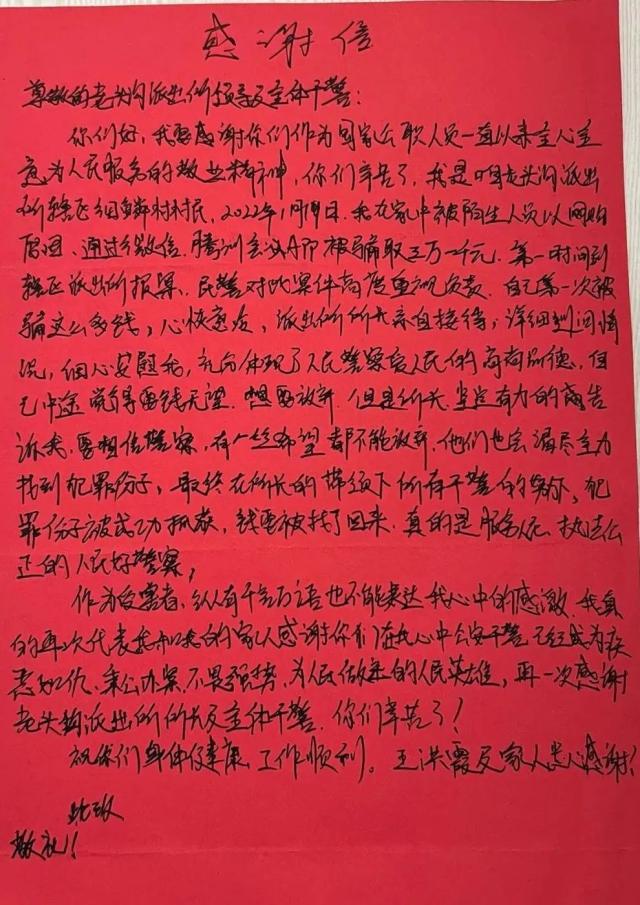 感谢信
尊敬的老头沟派出所领导及全体干警：
你们好，我要感谢你们作为国家公职人员一直以来全心全
意为人民服务的敬业精神，你们辛苦了，我是咱老头沟派出
所辖区细鳞村村民，2022年1月19日，我在家中被陌生人员以网购
通过微信，腾讯会议APP被骗取三万一千元，第一时间到
辖区派出所报案，民警对此案件高度重视负责，自己第一次被
骗这么多钱，心快，派出所所长亲自接待，详细询问情
况，细心安慰我，充分体现了人民警察爱人民的高尚品德，自
己中途觉得要钱无望，想要放弃，但是所长坚定有力的告
诉我，要相信警察，有一丝希望都不能放弃，他们也会竭尽全力
找到犯罪份子，最终在所长的带领下所有干警的努力下，犯
罪份子被成功抓获，钱要被找了回来，真的是服务人民，执法公
正的人民好警察，
作为受害者，纵有千言万语也不能表达我心中的感激，我真
的再次代表我和我的家人感谢你们在我心中公安干警已经成为疾
恶如仇，秉公办案，不畏强势，为民做主的人民英雄，再一次感谢
老头沟派出所所长及全体干警，你们辛苦了！
祝你们身体健康，工作顺利。王洪霞及家人感谢！
此致
敬礼！